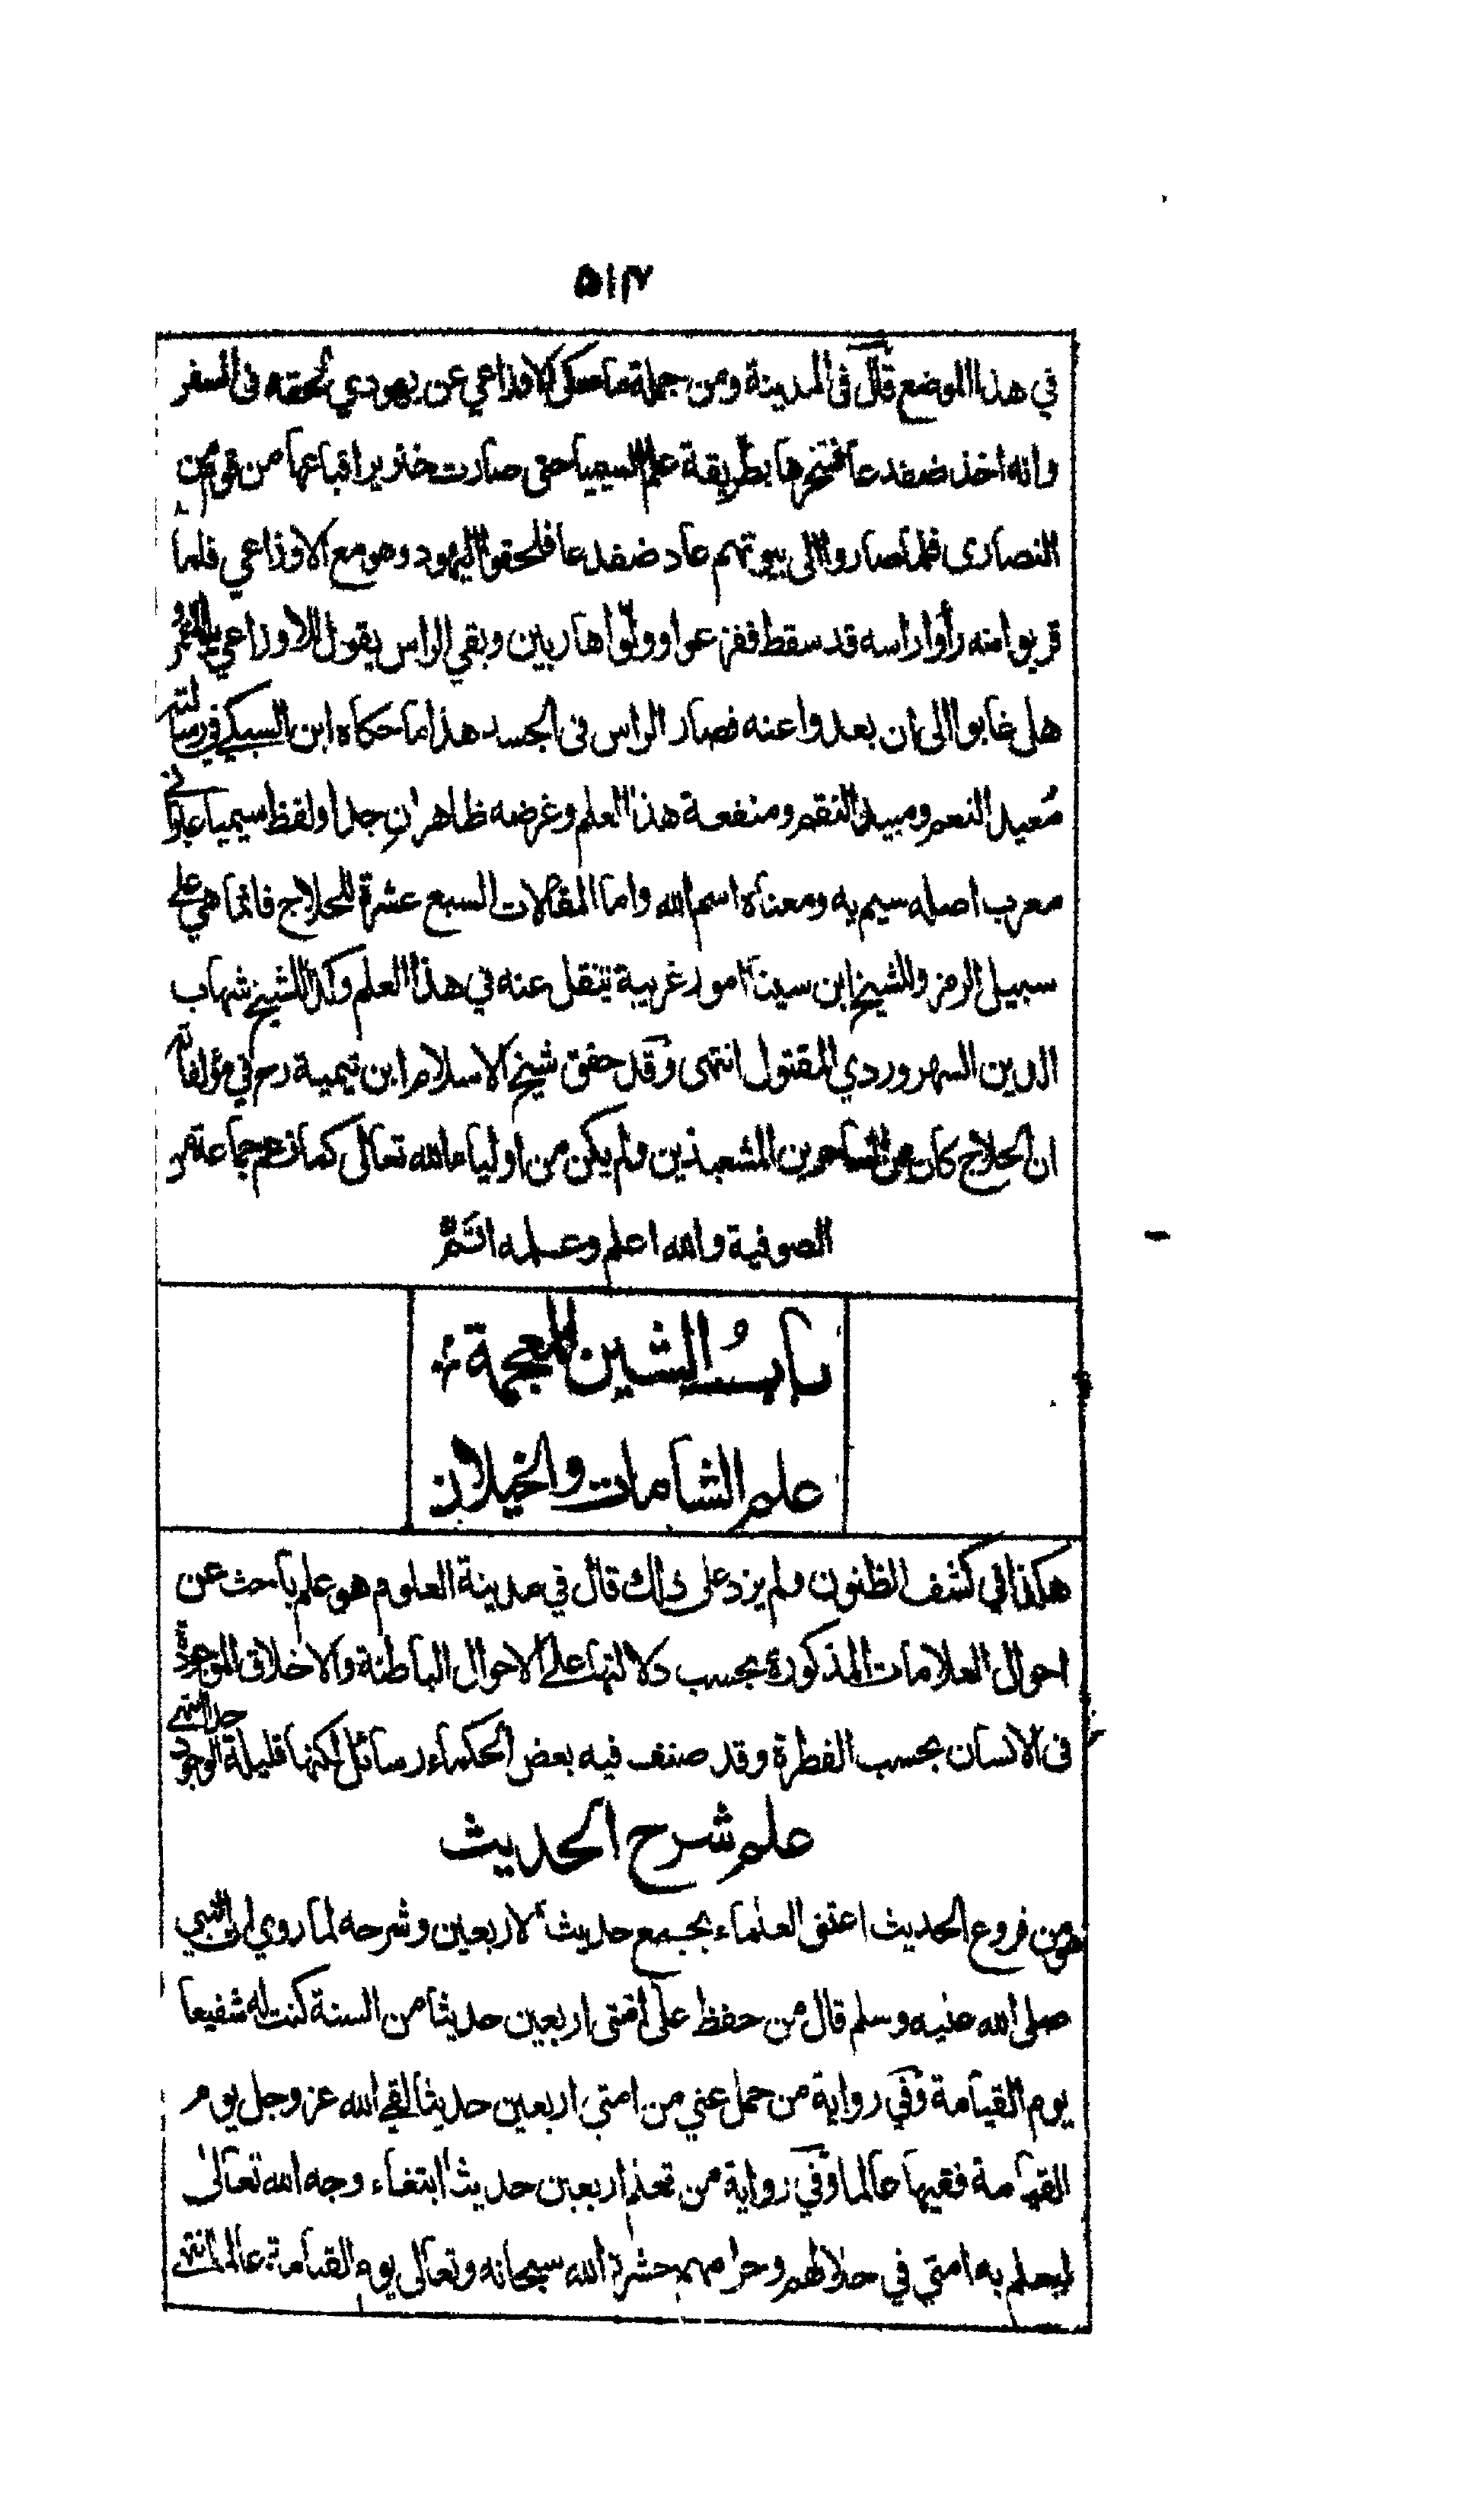 ٥١٢
في هذا الموضع قال في المدينة ومن جملة ما حكى الاوزاعي عن يهودي لحقه في السفر
وانه اخذ ضفدعا فسحرها بطريقة علم السيميا حتى صارت خنزيرا فباعها من قوم من
النصارى فلما صاروا الى بيوتهم عاد ضفدعا فلحقوا اليهود وهو مع الاوزاعي فلما
قربوا منه رأوا راسه قد سقط ففزعوا وولوا هاربين وبقي الراس يقول للاوزاعي يا ابا عمرو
هل غابوا الى ان بعدوا عنه فصار الراس في الجسد هذا ما حكاه ابن السبكي في رسالته
معيد النعم ومبيد النقم ومنفعة هذا العلم وغرضه ظاهران جدا ولفظ سيميا عبراني
معرب اصله سيم يه ومعناه اسم الله واما المقالات السبع عشرة للحلاج فانما هي على
سبيل الرمز وللشيخ ابن سينا امور غريبة تنقل عنه في هذا العلم وكذا للشيخ شهاب
الدين السهروردي المقتول انتهى وقد حقق شيخ الاسلام ابن تيمية رح في مؤلفاته
ان الحلاج كان من الساحرين المشعبذين ولم يكن من اولياء الله تعالى كما زعم جماعة من
الصوفية والله اعلم وعلمه اتم
باب الشين المعجمة
علم الشامات والخيلان
هكذا في كشف الظنون ولم يزد على ذلك قال في مدينة العلوم هو علم باحث عن
احوال العلامات المذكورة بحسب دلالتها على الاحوال الباطنة والاخلاق الموجودة
في الانسان بحسب الفطرة وقد صنف فيه بعض الحكماء رسائل لكنها قليلة الوجود جدا انتهى
علم شرح الحديث
هو من فروع الحديث اعتنى العلماء بجمع حديث الاربعين وشرحه لما روي ان النبي
صلى الله عليه وسلم قال من حفظ على امتى اربعين حديثا من السنة كنت له شفيعا
يوم القيامة وفي رواية من حمل عني من امتي اربعين حديثا لقي الله عز وجل يوم
القيامة فقيها عالما وفي رواية من تعلم اربعين حديثا ابتغاء وجه الله تعالى
ليعلم به امتي في حلالهم وحرامهم حشره الله سبحانه وتعالى يوم القيامة عالما انتهى